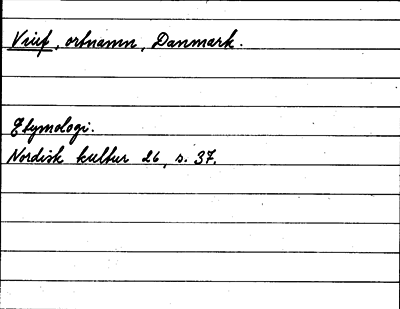 Vium, ortnamn, Danmark.
Etymologi.
Nordisk kultur 26, s. 37.